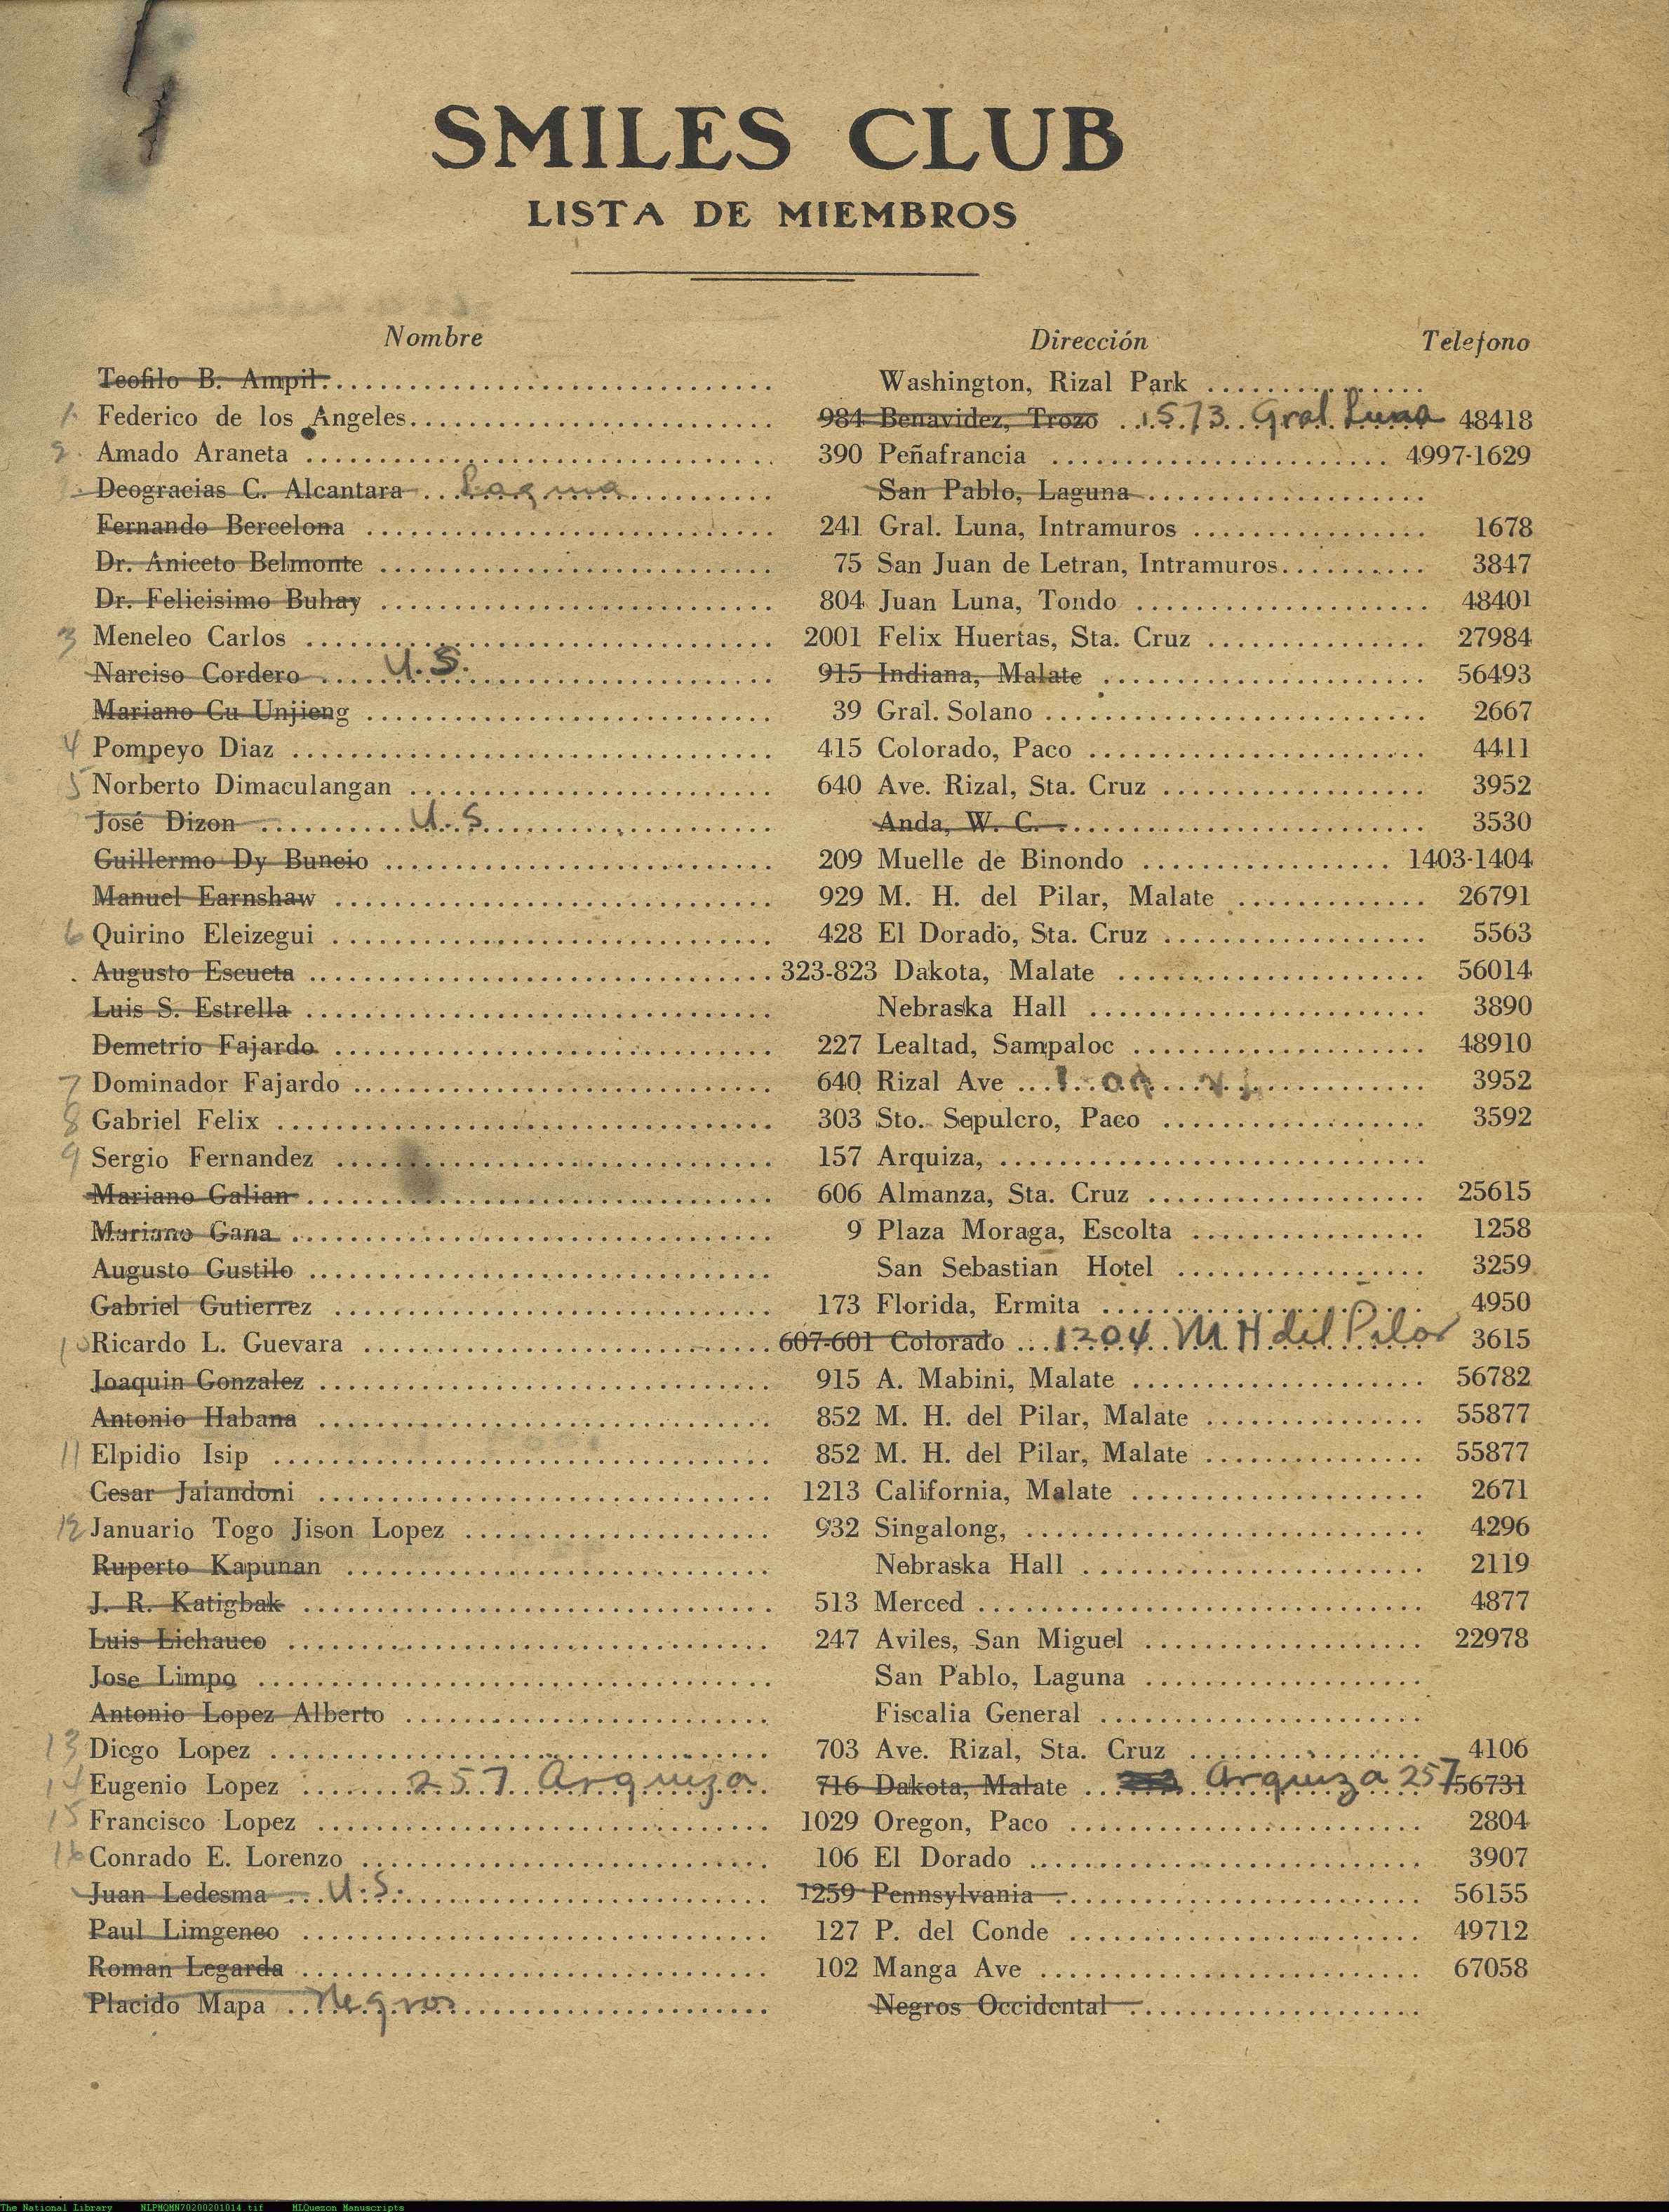 SMILES CLUB
LISTA DE MIEMBROS
Nombre Dirección Telefono
Teofilo B. Ampil Washington, Rizal Park
1. Federico de los Angeles 984 Benavidez, Trozo 1573 Gral. Luna 48418
2. Amado Araneta 390 Peñafrancia 4997-1629
Deogracias C. Alcantara Laguna San Pablo, Laguna
Fernando Bercelona 241 Gral. Luna, Intramuros 1678
Dr. Aniceto Belmonte 75 San Juan de Letran, Intramuros 3847
Dr. Felicisimo Buhay 804 Juan Luna, Tondo 48401
3 Meneleo Carlos 2001 Felix Huertas, Sta. Cruz 27984
Narciso Cordero U.S. 915 Indiana, Malate 56493
Mariano Cu Unjieng 39 Gral. Solano 2667
4 Pompeyo Diaz 415 Colorado, Paco 4411
5 Norberto Dimaculangan 640 Ave. Rizal, Sta. Cruz 3952
José Dizon U.S. Anda, W. C. 3530
Guillermo Dy Buncio 209 Muelle de Binondo 1403-1404
Manuel Earnshaw 929 M. H. del Pilar, Malate 26791
6 Quirino Eleizegui 428 El Dorado, Sta. Cruz 5563
Augusto Escueta 323-823 Dakota, Malate 56014
Luis S. Estrella Nebraska Hall 3890
Demetrio Fajardo 227 Lealtad, Sampaloc 48910
7 Dominador Fajardo 640 Rizal Ave 3952
8 Gabriel Felix 303 Sto. Sepulcro, Paco 3592
9 Sergio Fernandez 157 Arquiza,
Mariano Galian 606 Almanza, Sta. Cruz 25615
Mariano Gana 9 Plaza Moraga, Escolta 1258
Augusto Gustilo San Sebastian Hotel 3259
Gabriel Gutierrez 173 Florida, Ermita 4950
10 Ricardo L. Guevara 607-601 Colorado 1204 M H del Pilar 3615
Joaquin Gonzalez 915 A. Mabini, Malate 56782
Antonio Habana 852 M. H. del Pilar, Malate 55877
11 Elpidio Isip 852 M. H. del Pilar, Malate 55877
Cesar Jalandoni 1213 California, Malate 2671
12 Januario Togo Jison Lopez 932 Singalong, 4296
Ruperto Kapunan Nebraska Hall 2119
J. R. Katigbak 513 Merced 4877
Luis Lichauco 247 Aviles, San Miguel 22978
Jose Limpo San Pablo, Laguna
Antonio Lopez Alberto Fiscalia General
13 Diego Lopez 703 Ave. Rizal, Sta. Cruz 4106
14 Eugenio Lopez 257 Arquiza 716 Dakota, Malate Arquiza 257 56731
15 Francisco Lopez 1029 Oregon, Paco 2804
16 Conrado E. Lorenzo 106 El Dorado 3907
Juan Ledesma U.S. 1259 Pennsylvania 56155
Paul Limgenco 127 P. del Conde 49712
Roman Legarda 102 Manga Ave 67058
Placido Mapa Negros Negros Occidental
The National Library NLPMQMN70200201014.tif MLQuezon Manuscripts